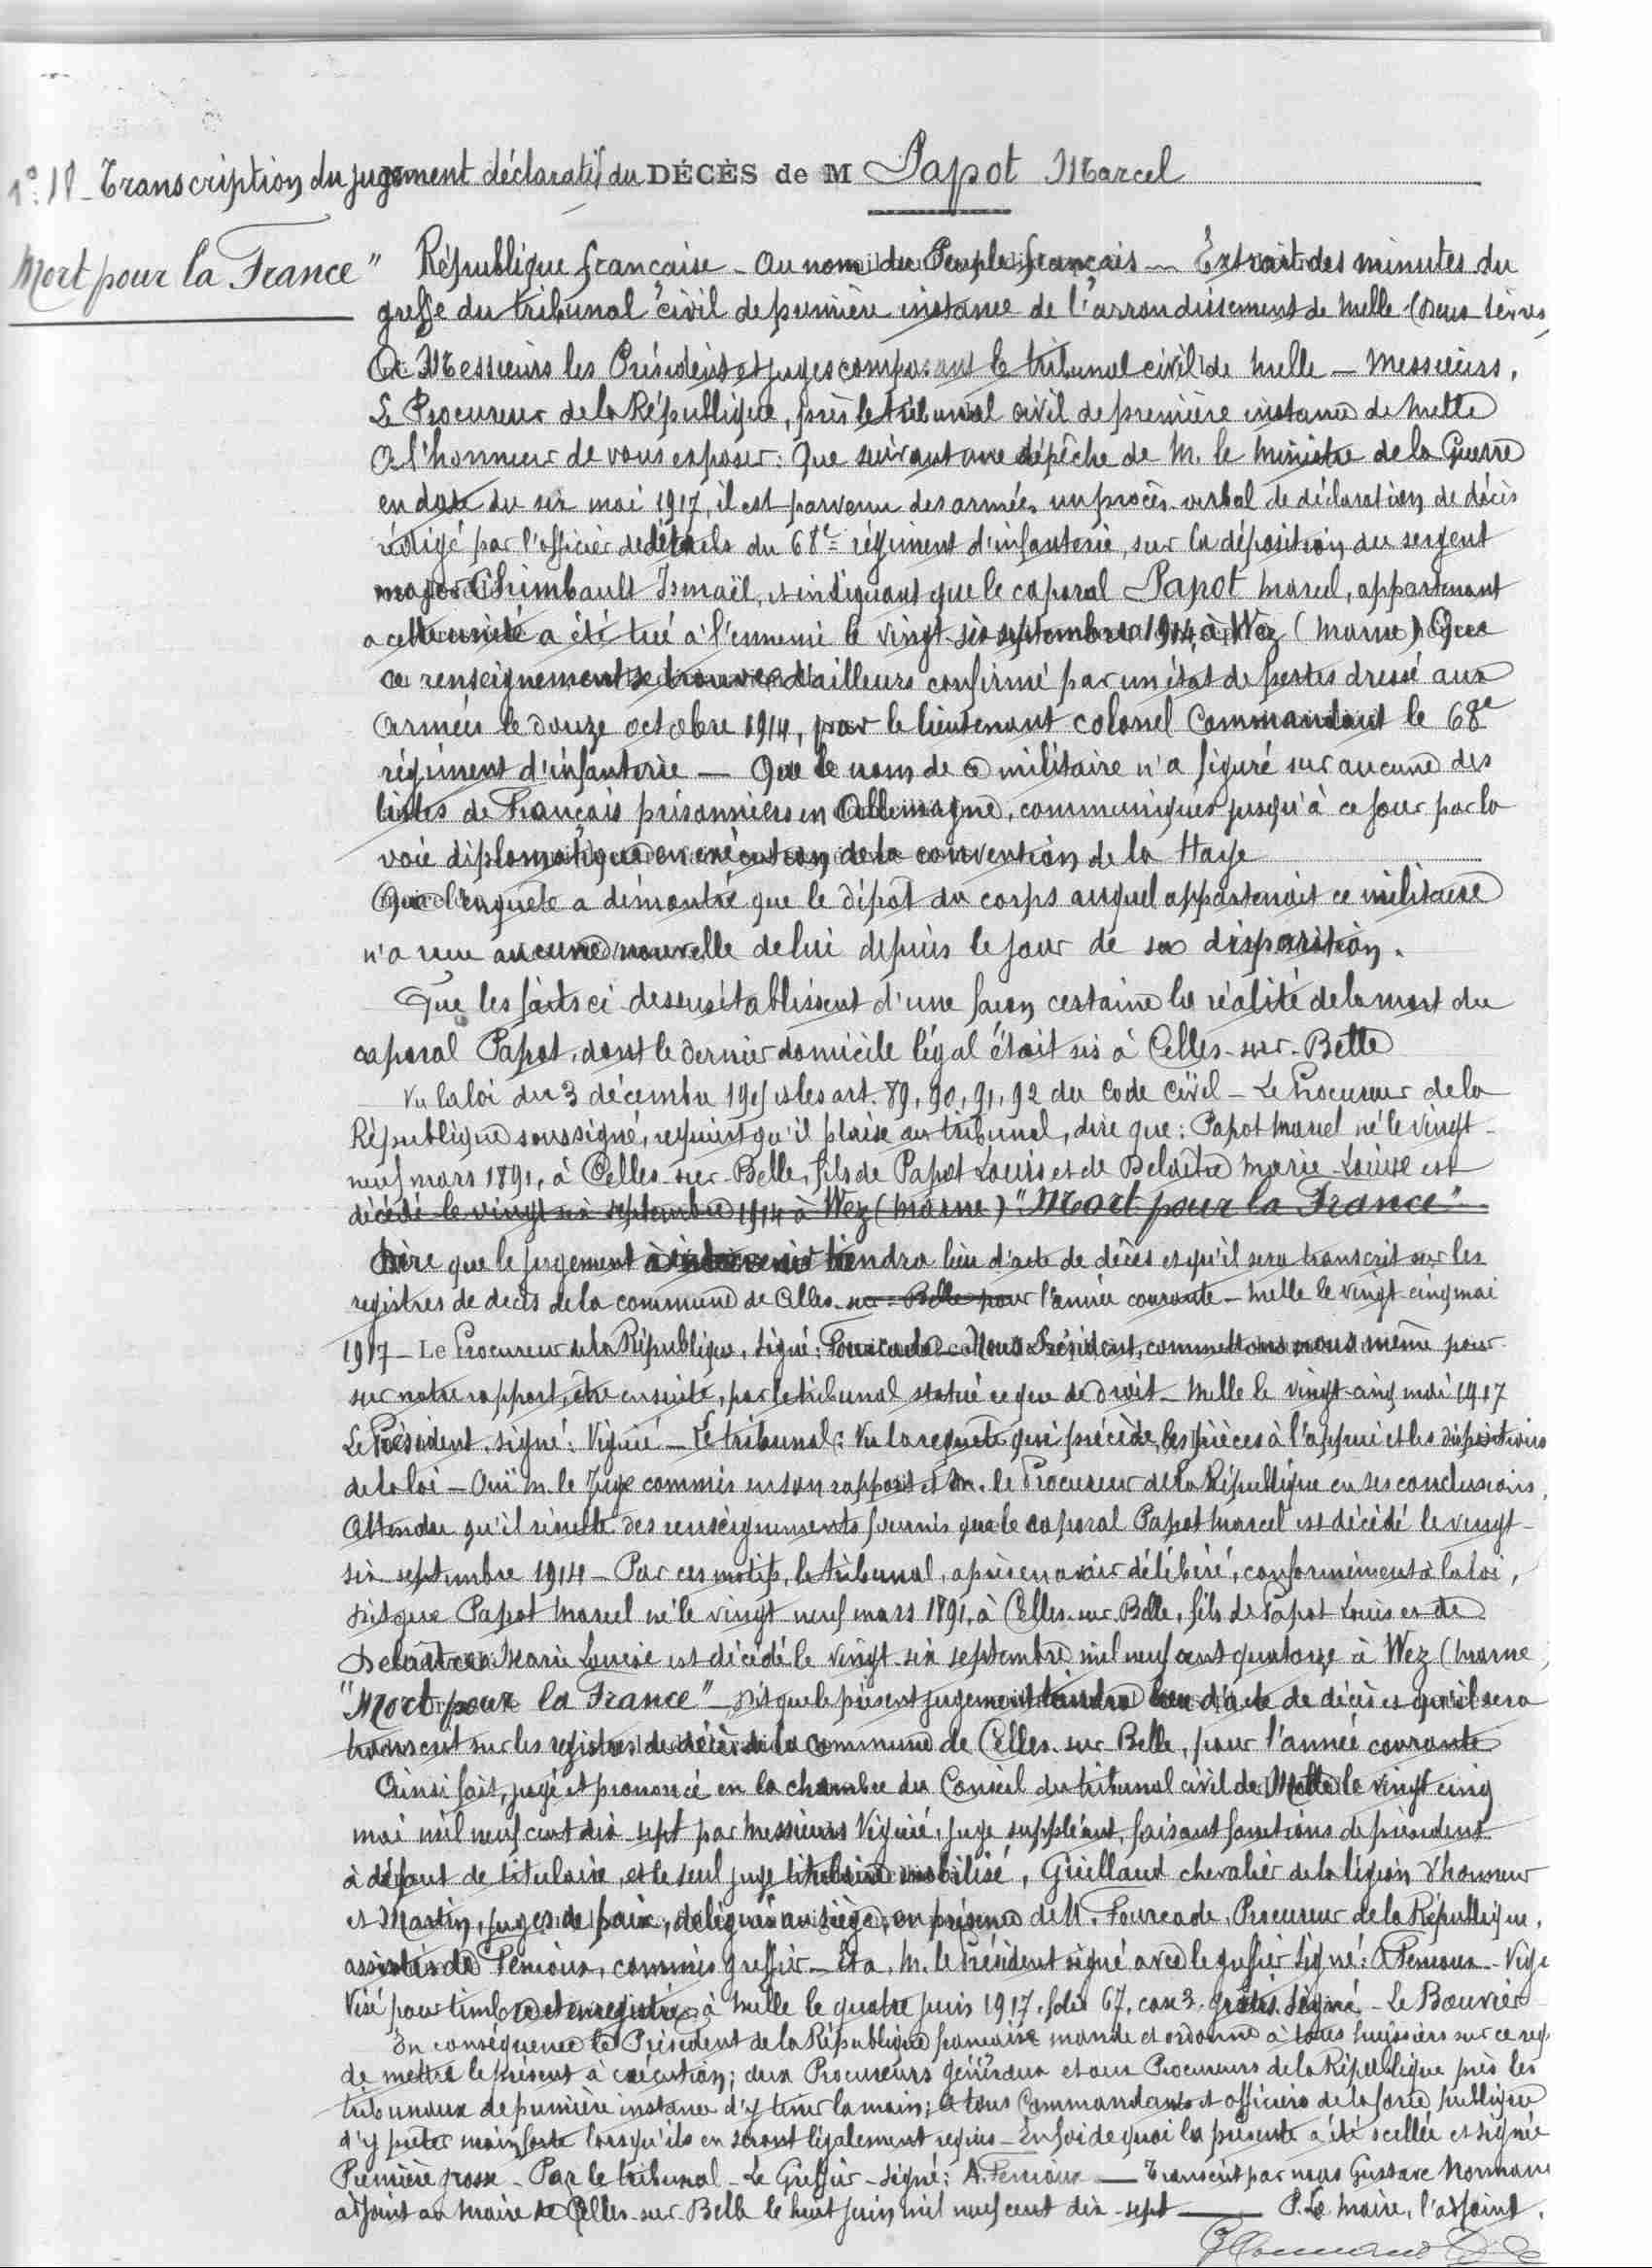 N° 18 - Transcription du jugement déclaratif du DÉCÈS de M Papot Marcel
Mort pour la France"
République française - Au nom du Peuple français - Extrait des minutes du
greffe du tribunal civil de première instance de l'arrondissement de Melle (Deux Sèvres
A Messieurs les Présidents et juges composant le tribunal civil de Melle - Messieurs,
Le Procureur de la République, près le tribunal civil de première instance de Melle
a l'honneur de vous exposer: Que suivant une dépêche de M. le Ministre de la Guerre
en date du six mai 1917, il est parvenu des armées un procès-verbal de déclaration de décès
rédigé par l'officier de détails du 68e régiment d'infanterie, sur la déposition du sergent
major Thimbault Ismaël, et indiquant que le caporal Papot Marcel, appartenant
a cette unité a été tué à l'ennemi le vingt-six septembre 1914, à Wez (Marne) Que
ce renseignement se trouve d'ailleurs confirmé par un état de pertes dressé aux
armées le douze octobre 1914, par le lieutenant colonel Commandant le 68e
régiment d'infanterie - Que le nom de ce militaire n'a figuré sur aucune des
listes de Français prisonniers en Allemagne, communiqués jusqu'à ce jour par la
voie diplomatique en exécution de la convention de la Haye
Que l'enquête a démontré que le dépôt du corps auquel appartenait ce militaire
n'a reçu aucune nouvelle de lui depuis le jour de sa disparition.
Que les faits ci-dessus établissent d'une façon certaine la réalité de la mort du
caporal Papot, dont le dernier domicile légal était sis à Celles-sur-Belle
Vu la loi du 3 décembre 1915 et les art. 89, 90, 91, 92 du Code Civil - Le Procureur de la
République soussigné, requiert qu'il plaise au tribunal, dire que: Papot Marcel né le vingt-
neuf mars 1891, à Celles-sur-Belle, fils de Papot Louis et de Delaître Marie-Louise est
décédé le vingt six septembre 1914 à Wez (Marne) "Mort pour la France"
Dire que le jugement à intervenir tiendra lieu d'acte de décès et qu'il sera transcrit sur les
registres de décès de la commune de Celles-sur-Belle pour l'année courante - Melle le vingt-cinq mai
1917 - Le Procureur de la République, signé: Fourcade - Nous Président, commettons nous même pour
sur notre rapport, être ensuite, par le tribunal statué ce que de droit - Melle le vingt-cinq mai 1917
Le Président, signé: Viguié - Le tribunal: Vu la requête qui précède, les pièces à l'appui et les dispositions
de la loi - Ouï M. le Juge commis en son rapport et M. le Procureur de la République en ses conclusions,
Attendu qu'il résulte des renseignements fournis que le caporal Papot Marcel est décédé le vingt-
six septembre 1914 - Par ces motifs, le tribunal, après en avoir délibéré, conformément à la loi,
Dit que Papot Marcel né le vingt-neuf mars 1891, à Celles-sur-Belle, fils de Papot Louis et de
Delaître Marie Louise est décédé le vingt-six septembre mil neuf cent quatorze à Wez (Marne)
"Mort pour la France" - Dit que le présent jugement tiendra lieu d'acte de décès et qu'il sera
transcrit sur les registres de décès de la commune de Celles-sur-Belle, pour l'année courante
Ainsi fait, jugé et prononcé en la chambre du Conseil du tribunal civil de Melle le vingt cinq
mai mil neuf cent dix-sept par Messieurs Viguié, juge suppléant, faisant fonctions de président
à défaut de titulaire, et le seul juge titulaire mobilisé, Guilland chevalier de la légion d'honneur
et Martin, juges de paix, délégués au siège, en présence de M. Fourcade, Procureur de la République,
assistés de Pénioux, commis greffier - Et a, M. le Président signé avec le greffier signé: A Pénioux - Vigu
Visé pour timbre et enregistré à Melle le quatre juin 1917, folio 67, case 3. gratis. Signé - Le Bouvier
En conséquence le Président de la République française mande et ordonne à tous huissiers sur ce req
de mettre le présent à exécution; aux Procureurs généraux et aux Procureurs de la République près les
tribunaux de première instance d'y tenir la main; A tous Commandants et officiers de la force publique
d'y prêter main forte lorsqu'ils en seront légalement requis - En foi de quoi la présente a été scellée et signée
Première grosse - Par le tribunal - Le Greffier - signé: A. Pénioux - Transcrit par nous Gustave Normand
adjoint au Maire de Celles-sur-Belle le huit juin mil neuf cent dix-sept - P. Le Maire, l'adjoint,